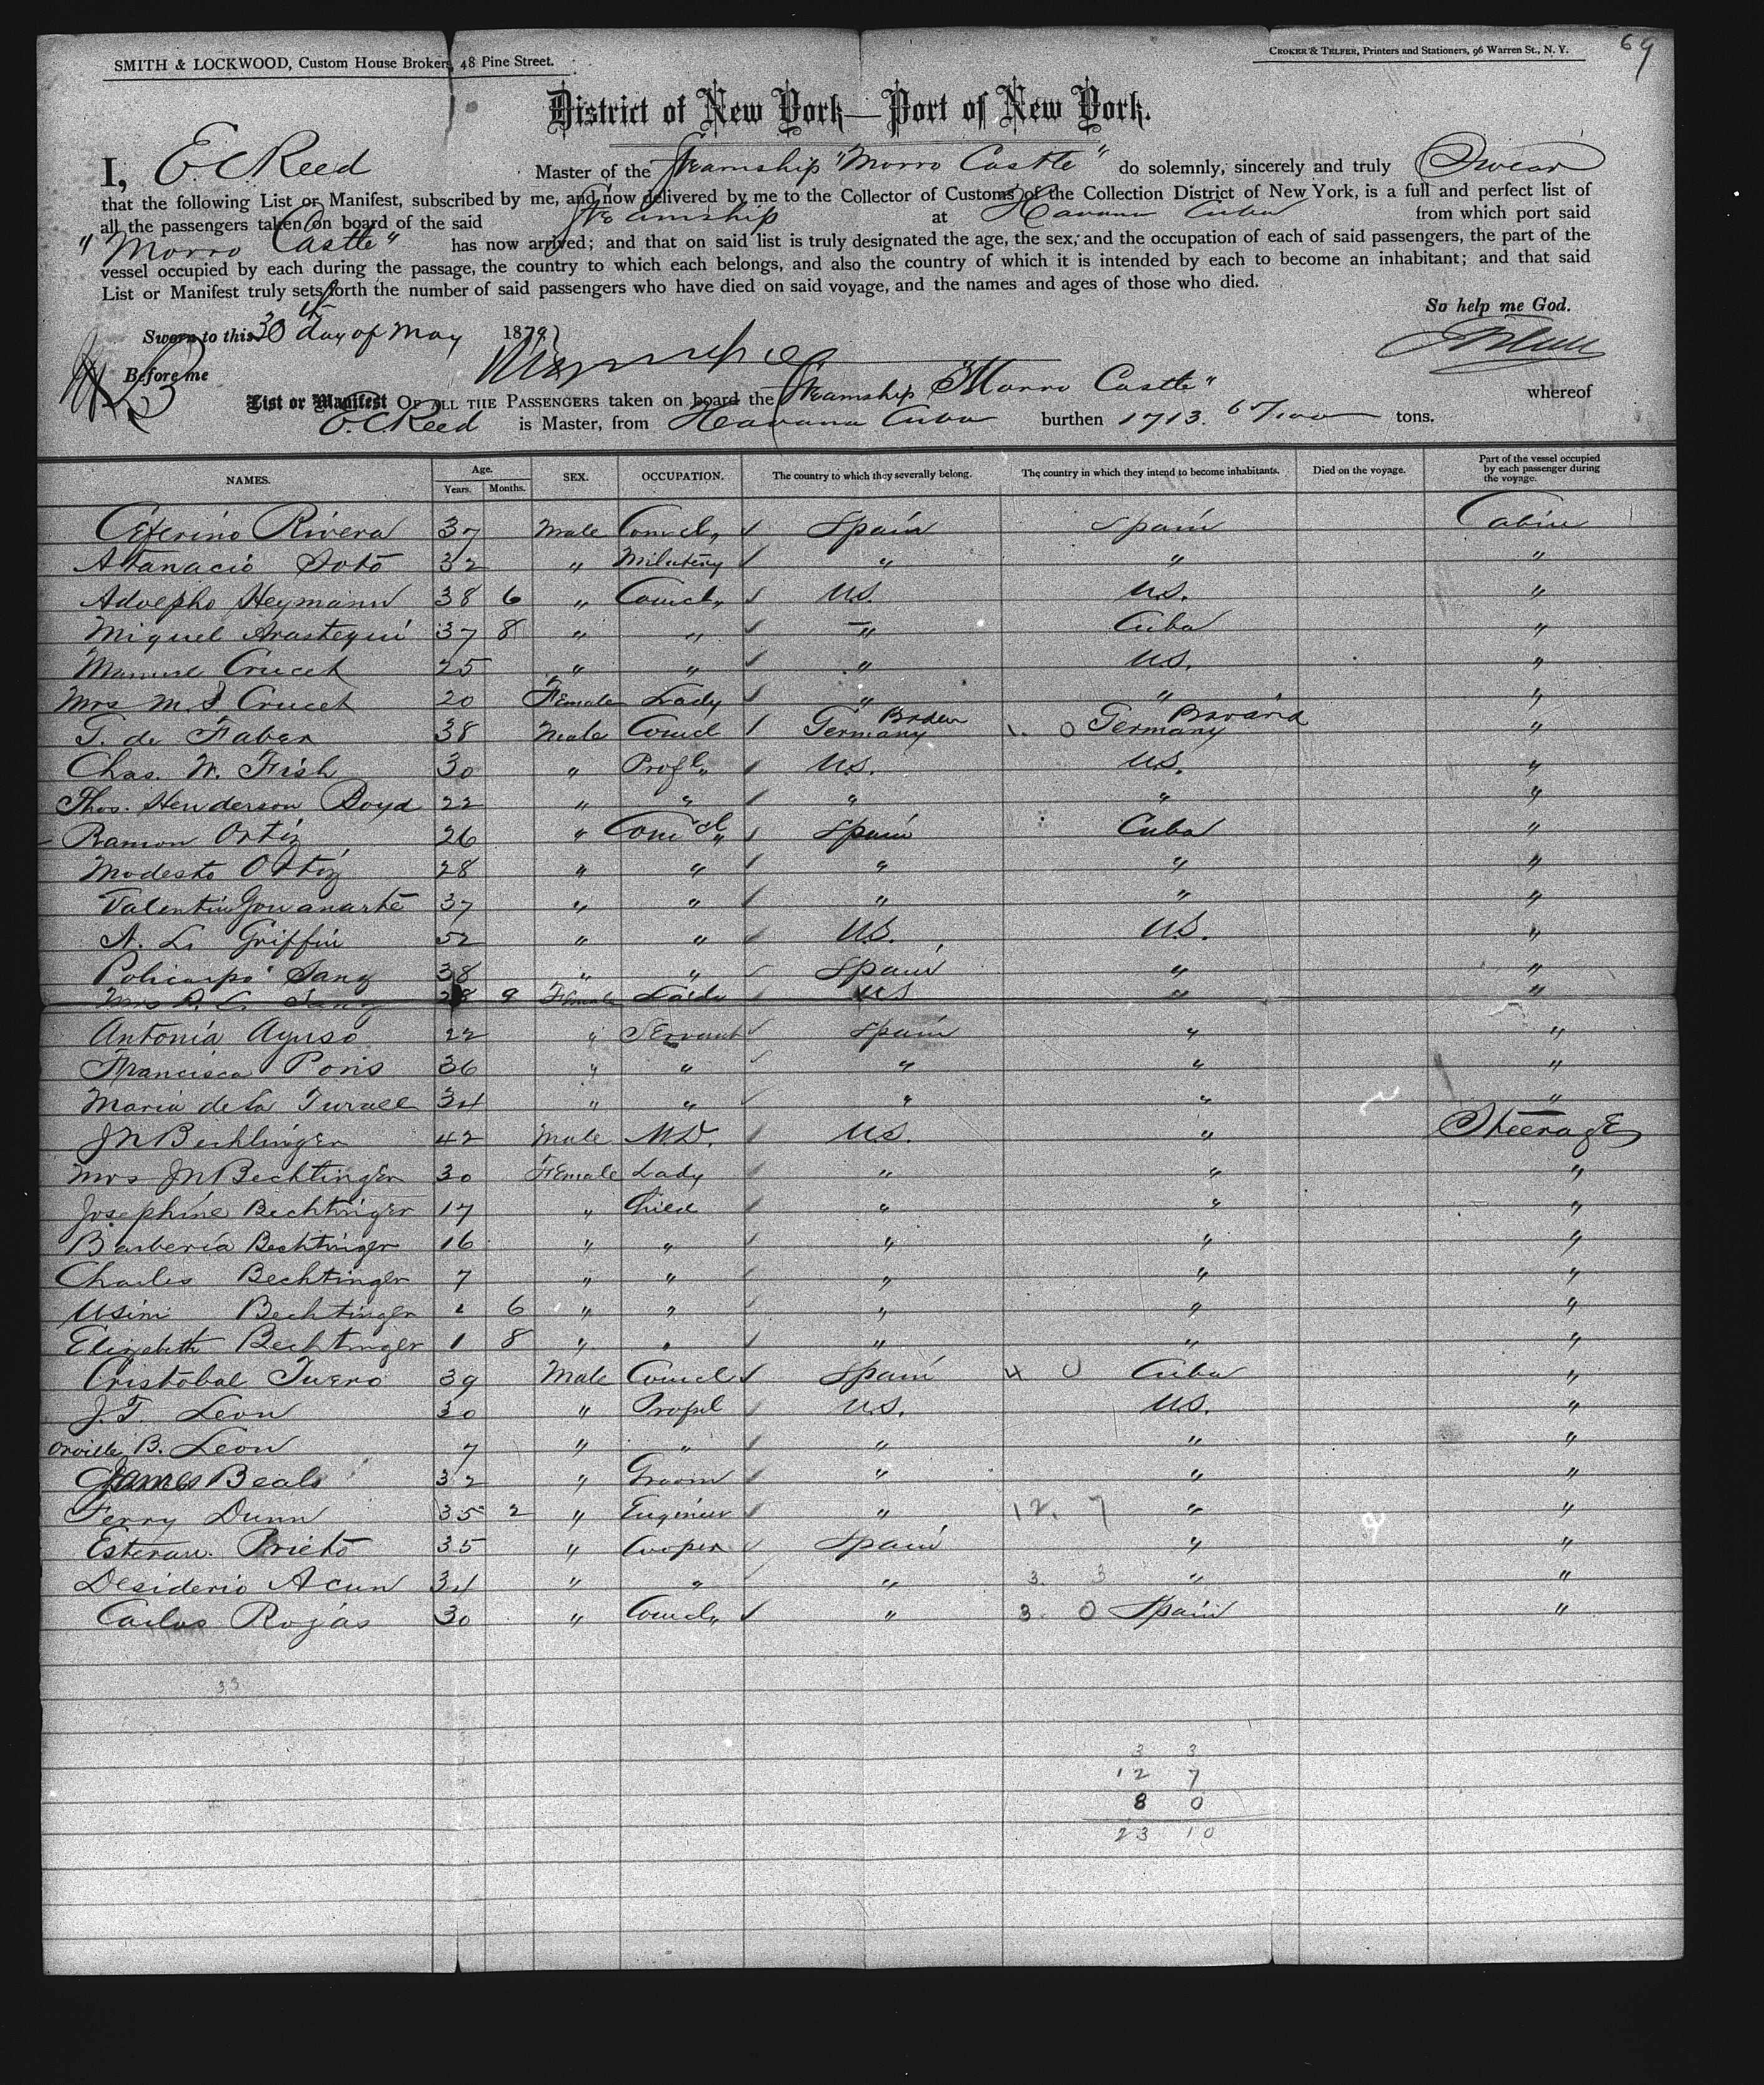 69
SMITH & LOCKWOOD, Custom House Brokers, 48 Pine Street.
CROKER & TELFER, Printers and Stationers, 96 Warren St., N. Y.
District of New York—Port of New York.
I, E. C. Reed Master of the Steamship "Morro Castle" do solemnly, sincerely and truly Swear
that the following List or Manifest, subscribed by me, and now delivered by me to the Collector of Customs of the Collection District of New York, is a full and perfect list of
all the passengers taken on board of the said Steamship at Havana Cuba from which port said
"Morro Castle" has now arrived; and that on said list is truly designated the age, the sex, and the occupation of each of said passengers, the part of the
vessel occupied by each during the passage, the country to which each belongs, and also the country of which it is intended by each to become an inhabitant; and that said
List or Manifest truly sets forth the number of said passengers who have died on said voyage, and the names and ages of those who died.
So help me God.
Sworn to this 30th day of May 1879
Before me
List or Manifest OF ALL THE PASSENGERS taken on board the Steamship "Morro Castle" whereof
E. C. Reed is Master, from Havana Cuba burthen 1713. tons.
NAMES. Age. Years. Months. SEX. OCCUPATION. The country to which they severally belong. The country in which they intend to become inhabitants. Died on the voyage. Part of the vessel occupied by each passenger during the voyage.
Ceferino Rivera 37 Male Comcl, Spain Spain Cabin
Atanacio Soto 32 " Military " " "
Adolpho Heymann 38 6 " Comcl, U.S. U.S. "
Miguel Arastegui 37 8 " " " Cuba "
Manuel Crucet 25 " " " U.S. "
Mrs M. S. Crucet 20 Female Lady " " "
G. de Faber 38 Male Comcl Germany Baden Germany Bavaria "
Chas. W. Fish 30 " Profl, U.S. U.S. "
Thos. Henderson Boyd 22 " " " " "
Ramon Ortiz 26 " Comcl, Spain Cuba "
Modesto Ortiz 28 " " " " "
Valentin 37 " " " " "
A. L. Griffin 52 " " U.S. U.S. "
Policarpo Sanz 38 " " Spain " "
Mrs Sanz 28 9 Female Lady US " "
Antonia Ayuso 22 " Servant Spain " "
Francisca Poris 36 " " " " "
Maria de la 34 " " " " "
J N Bechtinger 42 Male M.D. U.S. " Steerage
Mrs J N Bechtinger 30 Female Lady " " "
Josephine Bechtinger 17 " Child " " "
Barberia Bechtinger 16 " " " " "
Charles Bechtinger 7 " " " " "
Usini Bechtinger 2 6 " " " " "
Elizabeth Bechtinger 1 8 " " " " "
Cristobal Tuero 39 Male Comcl Spain 4 0 Cuba "
J. T. Leon 30 " Profsl U.S. U.S. "
Orville B. Leon 7 " " " " "
James Beals 32 " Groom " " "
Ferry Dunn 35 2 " Engineer " 12. 7 " "
Estevan Prieto 35 " Cooper Spain " "
Desiderio Acun 34 " " " 3. 3 " "
Carlos Rojas 30 " Comcl, " 3. 0 Spain "
33
3 3
12 7
8 0
23 10